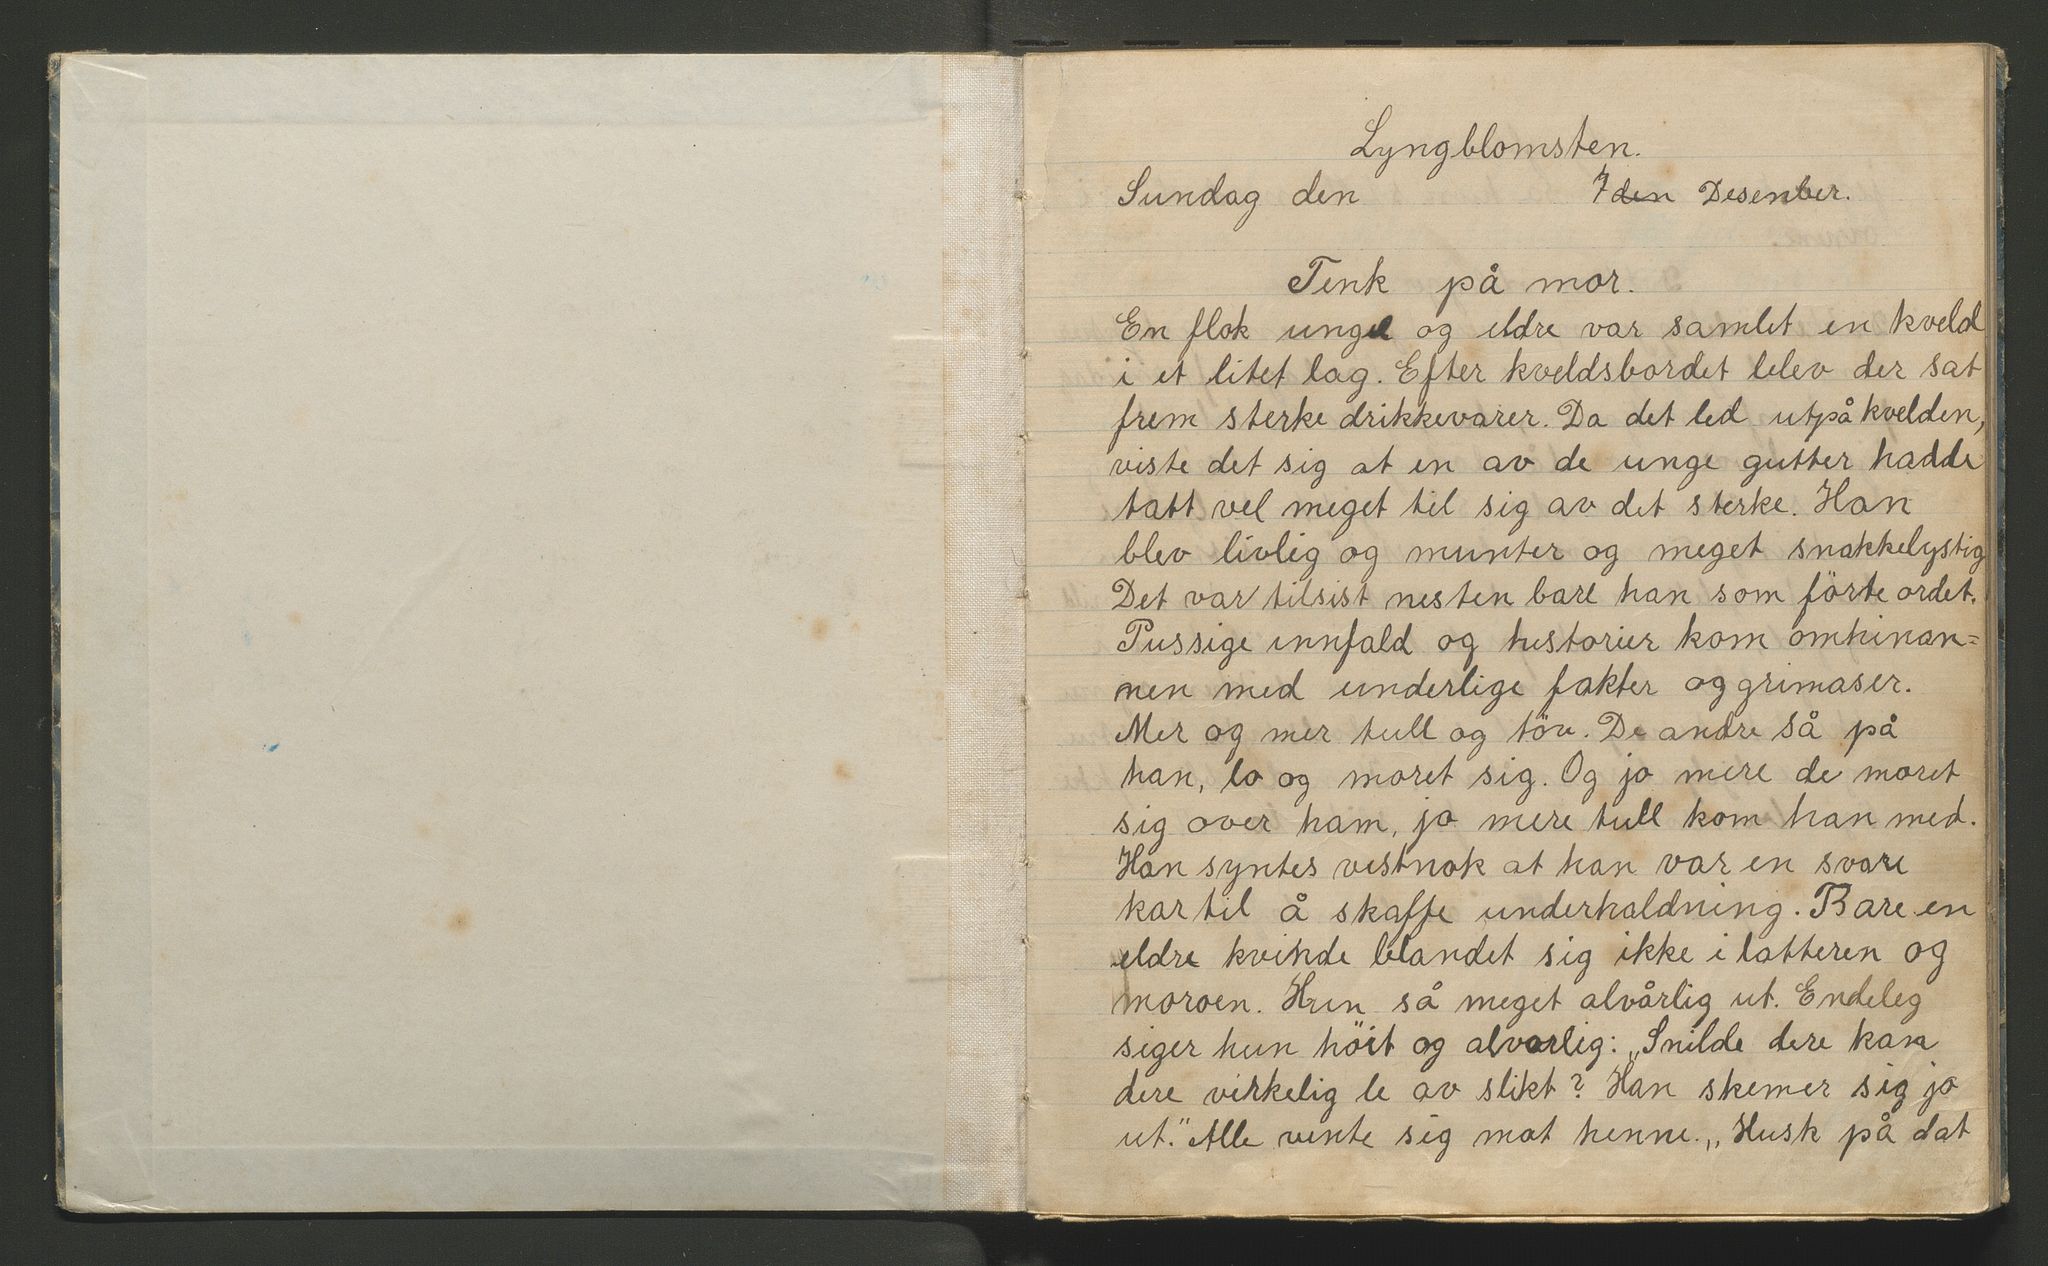 Lyngblomsten.
Sundag den 7den Desember.
Tenk på mor.
En flok unge og eldre var samlet en kveld
i et litet lag. Efter kveldsbordet blev der sat
frem sterke drikkevarer. Da det led utpå kvelden,
viste det sig at en av de unge gutter hadde
tatt vel meget til sig av det sterke. Han
blev livlig og munter og meget snakkelystig
Det var tilsist nesten bare han som förte ordet.
Pussige innfald og historier kom omhinan=
nen med underlige fakter og grimaser.
Mer og mer tull og töv. De andre så på
han, lo og moret sig. Og jo mere de moret
sig over ham, jo mere tull kom han med.
Han syntes vestnok at han var en svare
kar til å skaffe underhaldning. Bare en
eldre kvinde blandet sig ikke i latteren og
moroen. Hun så meget alvårlig ut. Endeleg
siger hun höit og alvorlig: „Snilde dere kan
dere virkelig le av slikt? Han skemer sig jo
ut." Alle vente sig mot henne. „Husk på dat